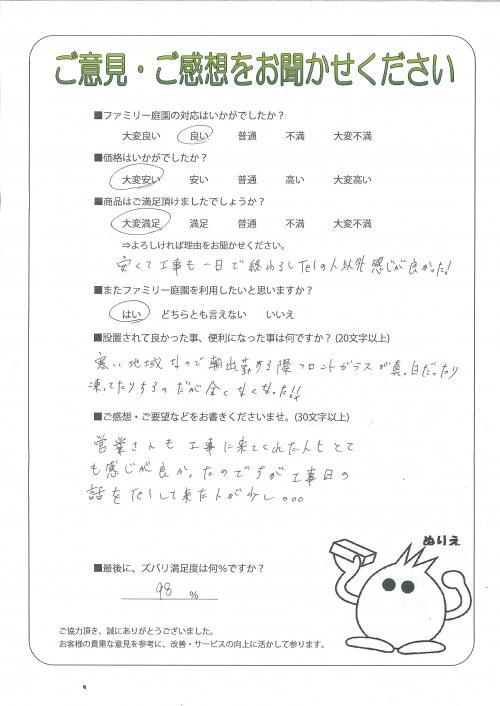 ご意見・ご感想をお聞かせください
■ファミリー庭園の対応はいかがでしたか？
大変良い 良い 普通 不満 大変不満
■価格はいかがでしたか？
大変安い 安い 普通 高い 大変高い
■商品はご満足頂けましたでしょうか？
大変満足 満足 普通 不満 大変不満
⇒よろしければ理由をお聞かせください。
安くて工事も一日で終わるしTelの人以外感じが良かった！
■またファミリー庭園を利用したいと思いますか？
はい どちらとも言えない いいえ
■設置されて良かった事、便利になった事は何ですか？(20文字以上)
寒い地域なので朝出勤する際フロントガラスが真っ白だったり
凍ってたりするのだが全くなくなった!!
■ご感想・ご要望などをお書きくださいませ。(30文字以上)
営業さんも工事に来てくれた人もとて
も感じが良かったのですが工事日の
話をTelして来た人が少し。。。
ぬりえ
■最後に、ズバリ満足度は何％ですか？
98 %
ご協力頂き、誠にありがとうございました。
お客様の貴重な意見を参考に、改善・サービスの向上に活かして参ります。